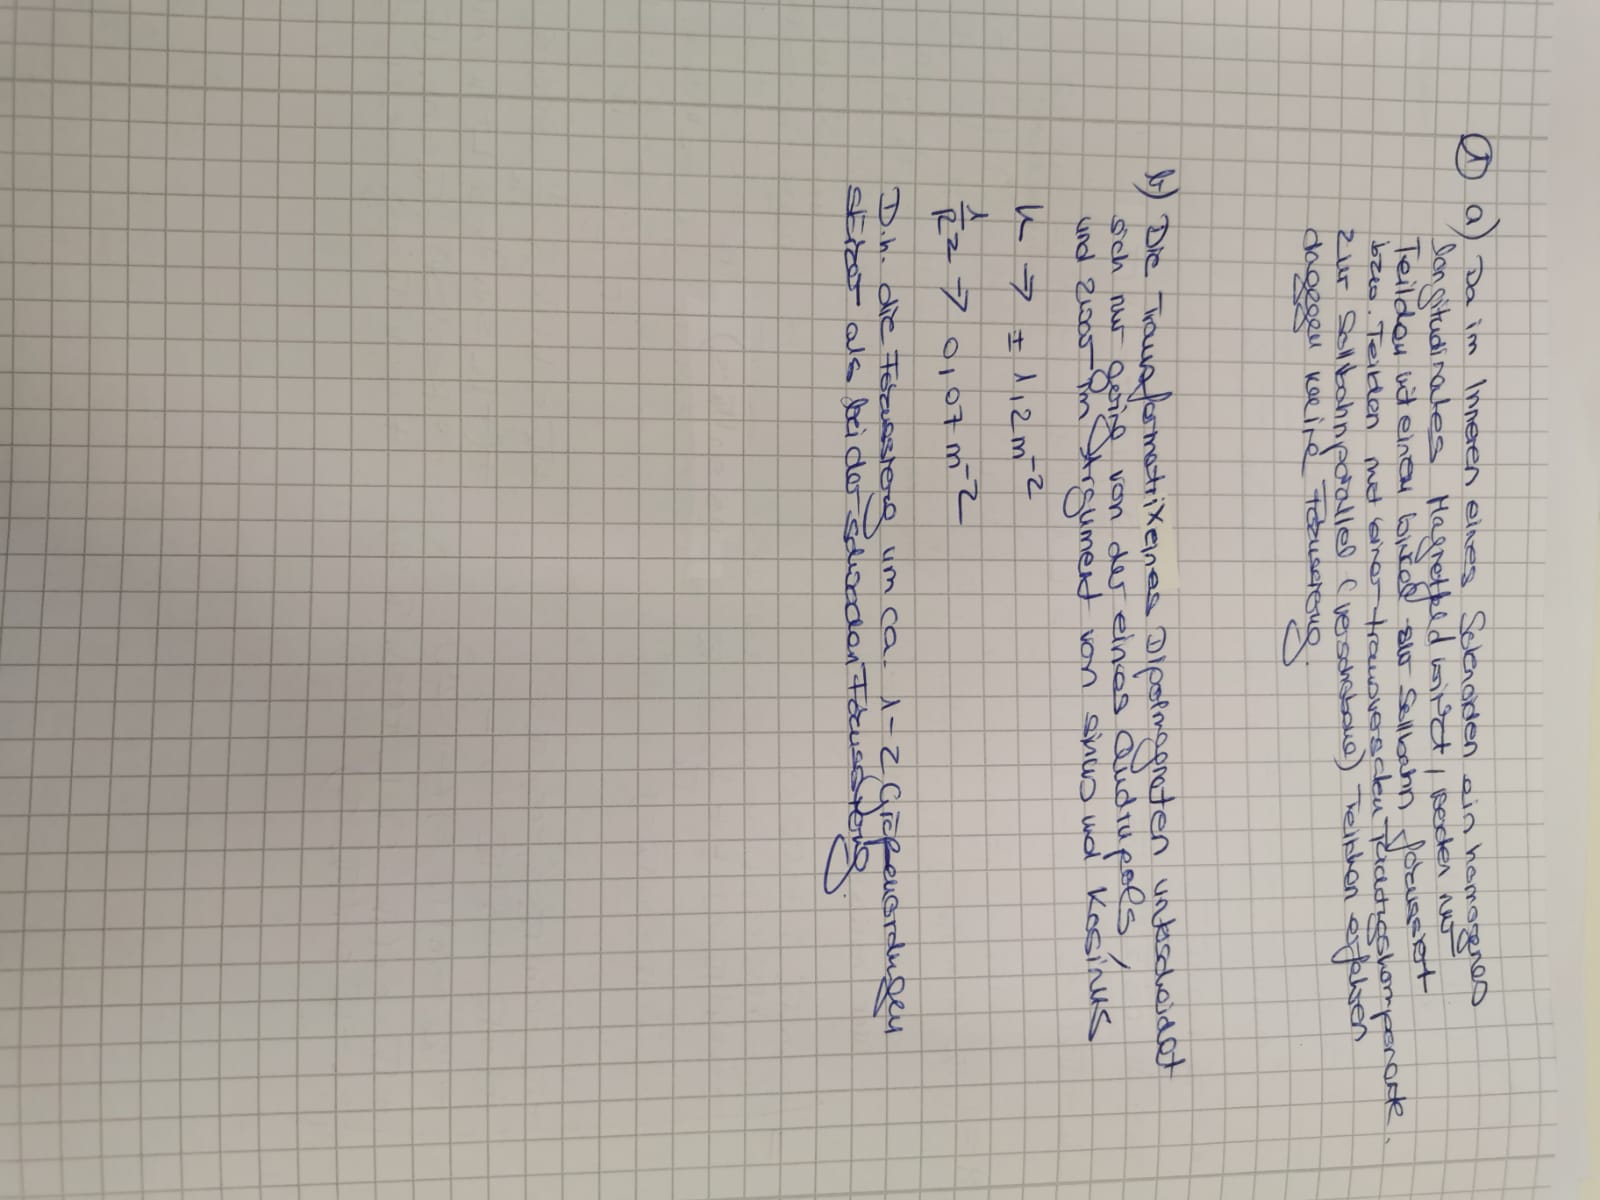 ① a) Da im Inneren eines Solenoiden ein homogenes
longitudinales Magnetfeld wirkt, werden nur
Teilchen mit einem Winkel zur Sollbahn fokussiert
bzw. Teilchen mit einer transversalen Richtungskomponente.
Zur Sollbahn parallel (verschobene) Teilchen erfahren
dagegen keine Fokussierung.
b) Die Transformatrix eines Dipolmagneten unterscheidet
sich nur gering von der eines Quadrupols,
und zwar im Argument von sinus und Kosinus
k → ± 1,2 m⁻²
1/R² → 0,07 m⁻²
D.h. die Fokussierung im ca. 1-2 Größenordnungen
stärker als bei der schwachen Fokussierung.